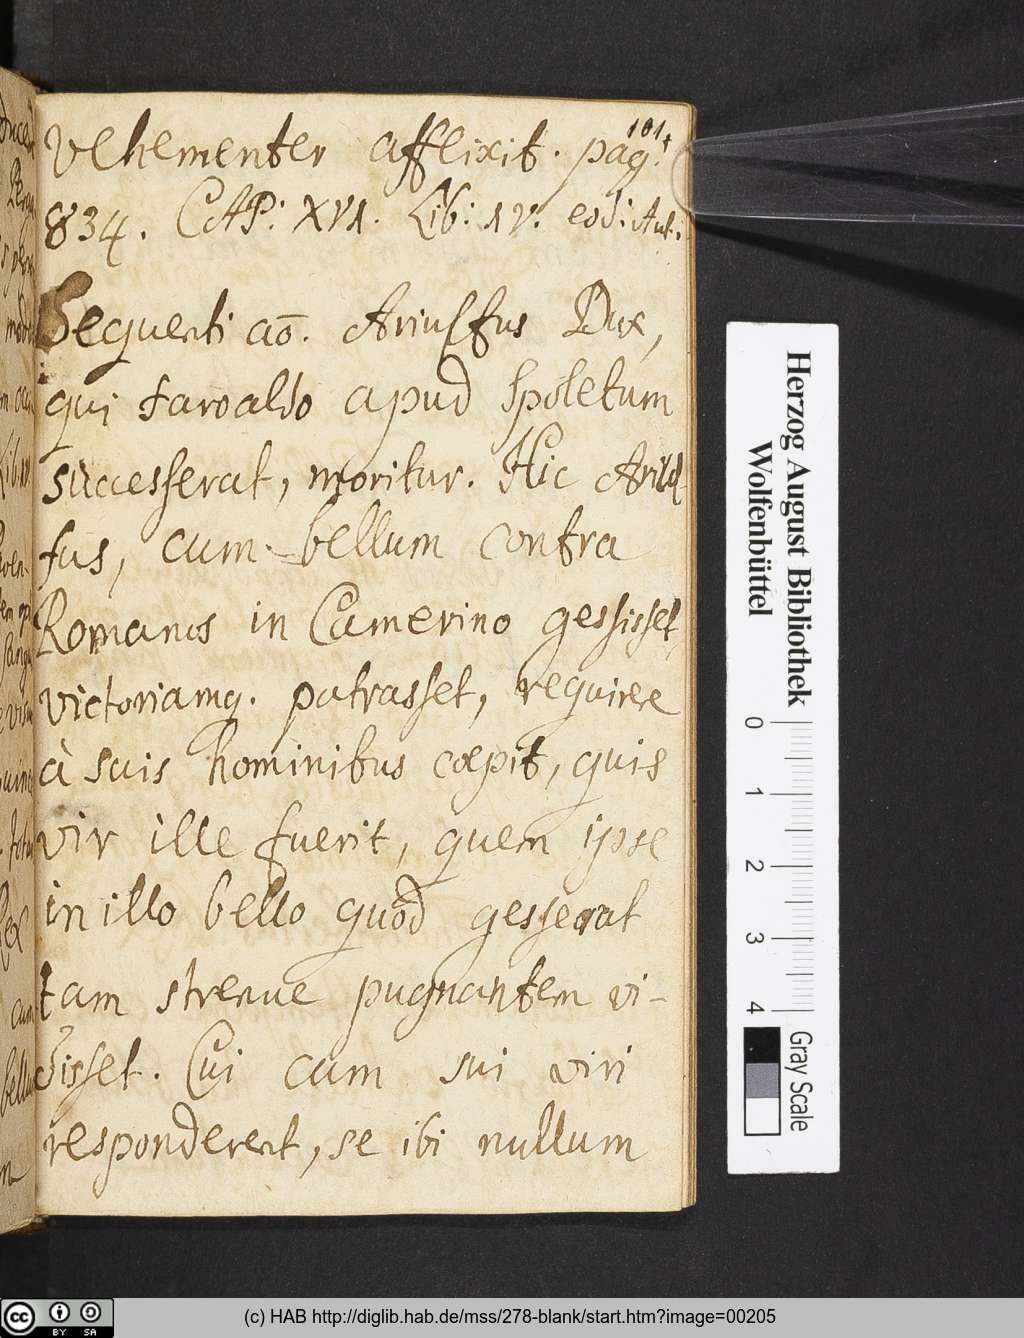 101
vehementer afflixit. pag.
834. CAP: XVI. Lib: IV. eod: Aut:
Sequenti aō. Ariulfus Dux,
qui Faroaldo apud Spoletum
successerat, moritur. Hic Ariul
fus, cum bellum contra
Romanos in Camerino gessisset,
victoriamq. patrasset, requirere
à suis hominibus cœpit, quis
vir ille fuerit, quem ipse
in illo bello quod gesserat
tam strenue pugnantem vi-
disset. Cui cum sui viri
responderent, se ibi nullum
Herzog August Bibliothek
Wolfenbüttel
0 1 2 3 4
Gray Scale
(c) HAB http://diglib.hab.de/mss/278-blank/start.htm?image=00205
cc BY SA